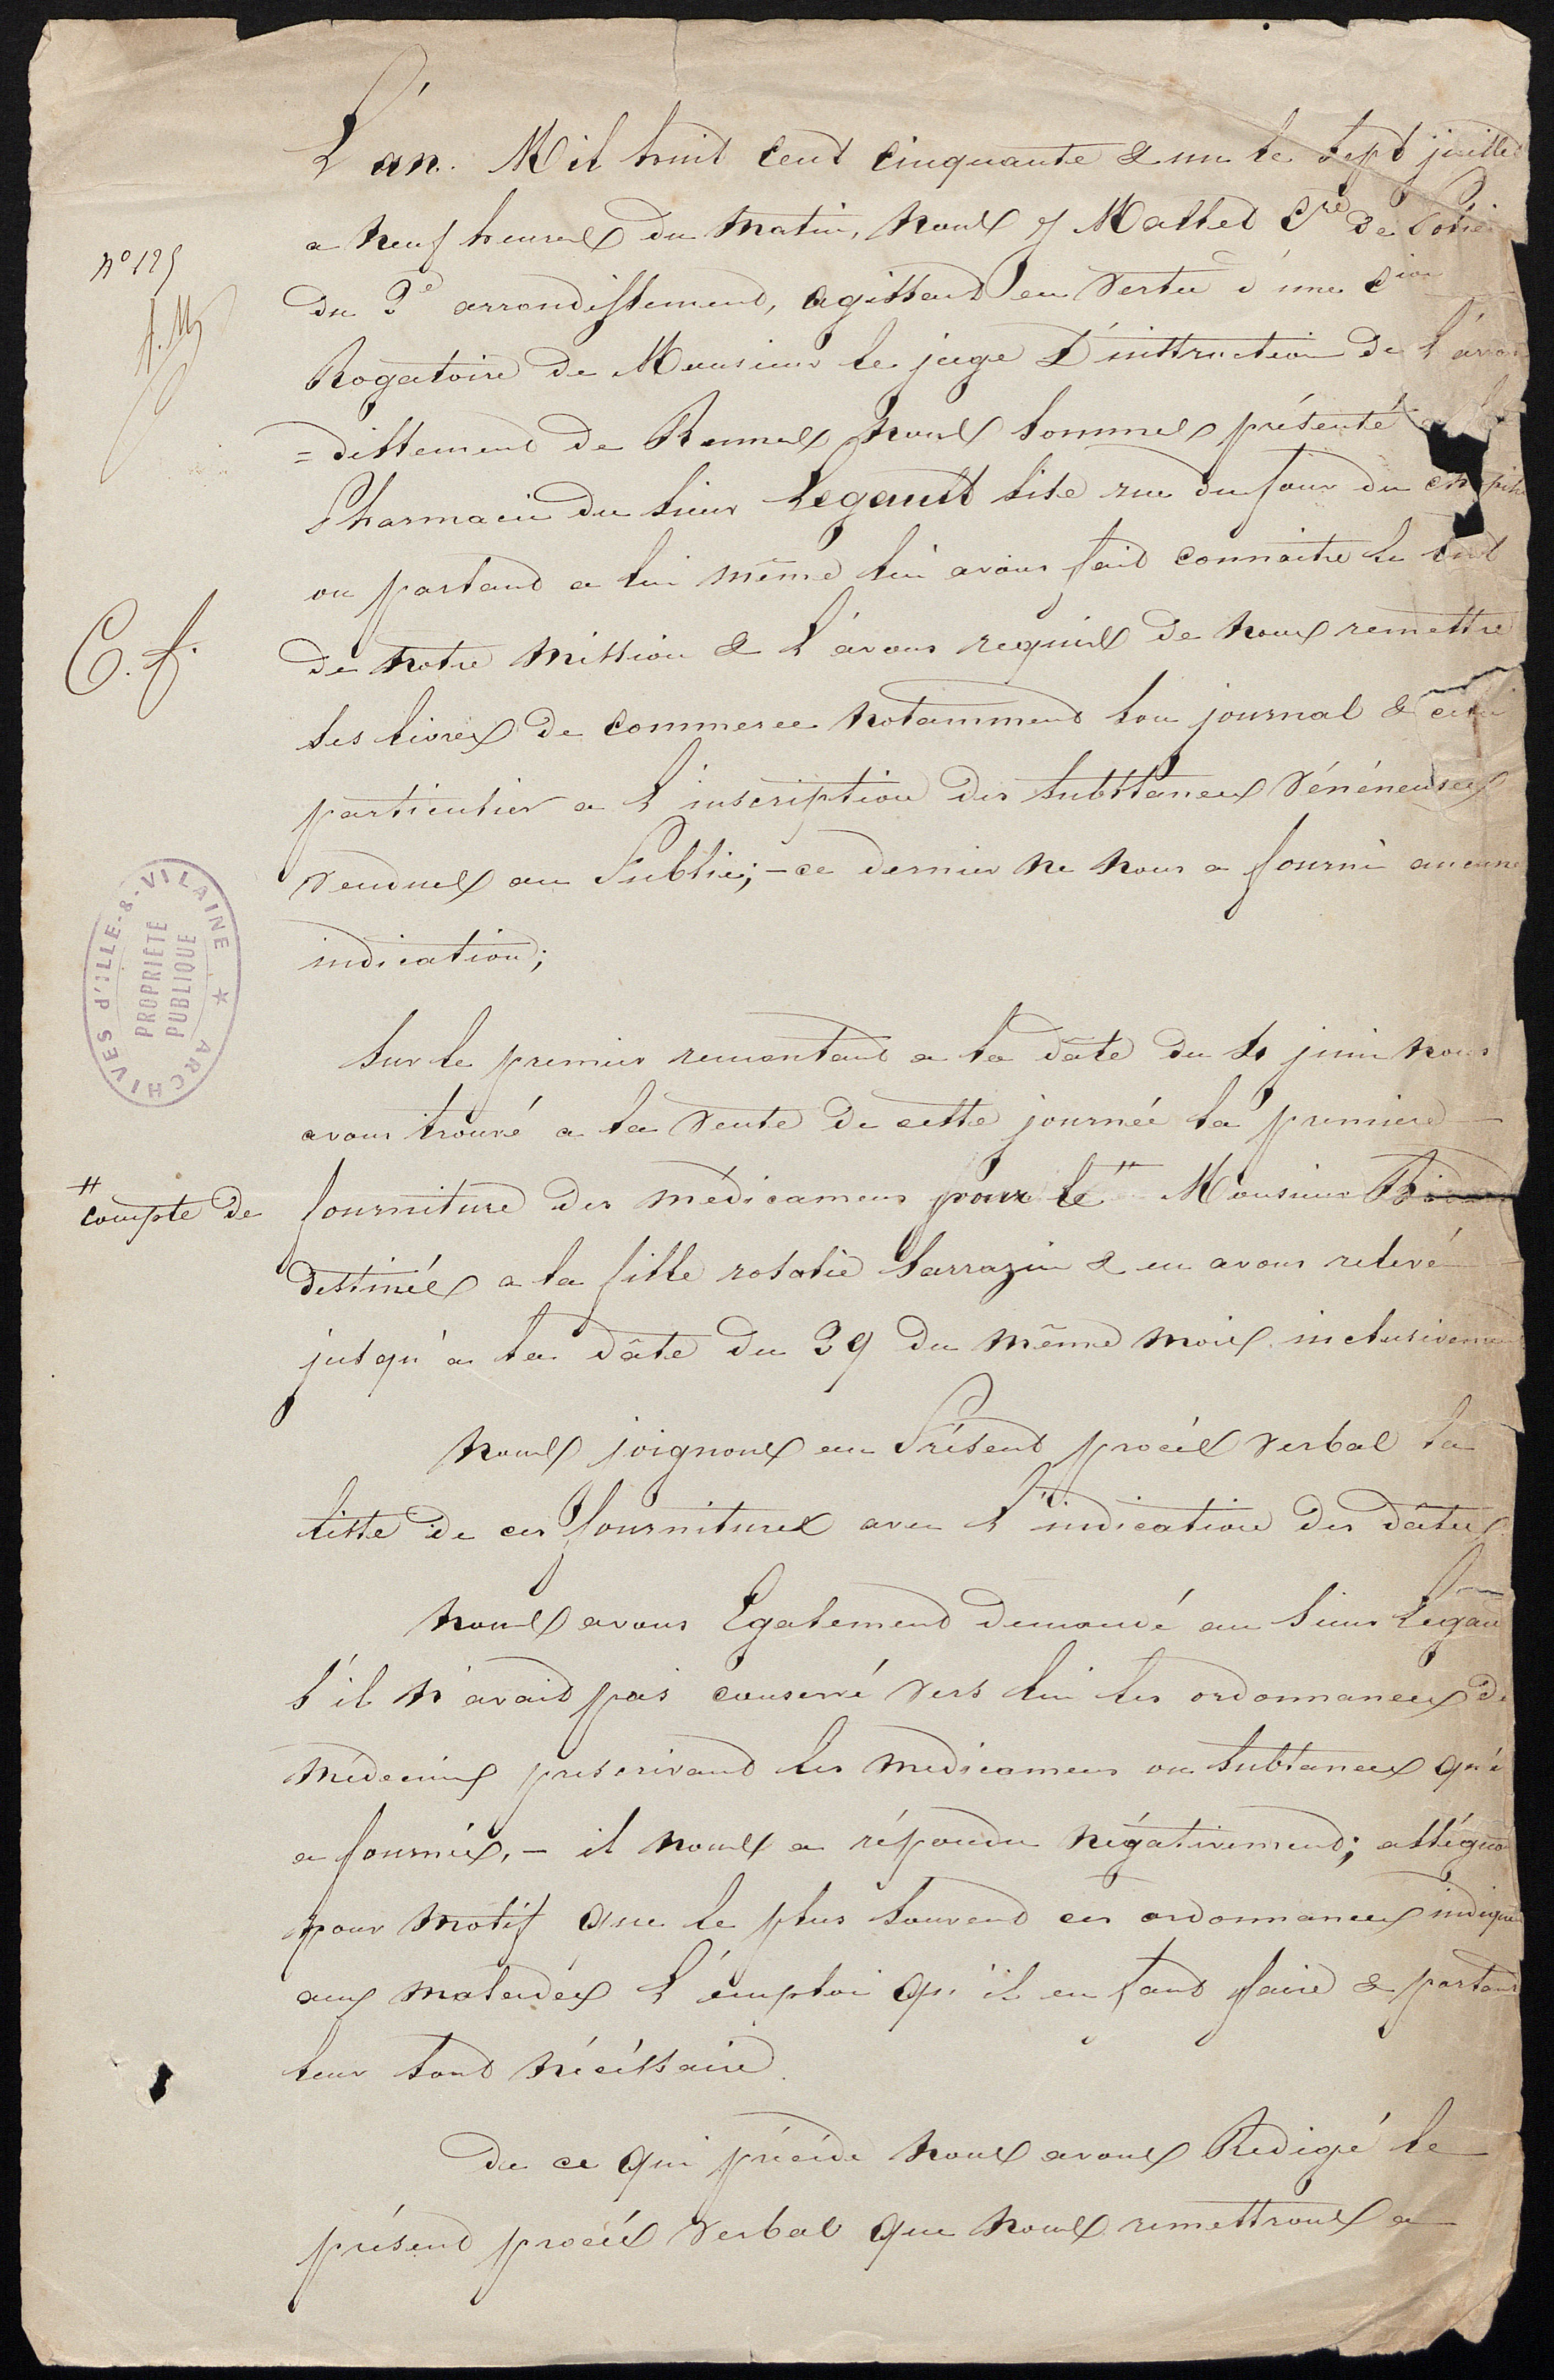 L'an Mil huit Cent Cinquante & un le Sept juillet
a neuf heures du matin, nous J Mallet Cre de Police
n° 125
du 3e arrondissement, agissant en Vertu d'une Cion
Rogatoire de Monsieur le juge D'instruction De l'arron
=dissement de Rennes nous sommes présenté a la
Pharmacie du Sieur Legault Sise rue du four du chapitre
ou partant a lui même lui avons fait connaitre le but
C. f.
de notre Mission & l'avons requis de nous remettre
ses livres De Commerce notamment son journal & celui
particulier a l'inscription des substances Vénéneuses
Vendues au Public; - ce dernier ne nous a fourni aucune
indication;
ARCHIVES d'ILLE-&-VILAINE ★
PROPRIÉTÉ
PUBLIQUE
Sur le premier remontant a la dâte du 4 juin nous
avons trouvé a la Vente de cette journée la premiere
# compte de
fourniture des médicamens pour le # Monsieur Bidard
destinés a la fille rosalie Sarrazin & en avons relevé
jusqu'a la dâte du 39 du même mois inclusivement
Nous joignons au Présent procés Verbal la
liste de ces fournitures avec l'indication des dâtes.
Nous avons Egalement demandé au Sieur Legau
s'il n'avait pas conservé Vers lui les ordonnances de
médecins prescrivant les médicamens ou subtances qu'i
a fournis, - il nous a répondu négativement; allégua
pour motif que le plus souvent ces ordonnances indique
aux malades l'emploi qu'il en faut faire & partant
leur sont nécéssaire.
De ce qui précéde nous avons Redigé le
présent procés Verbal que nous remettrons a